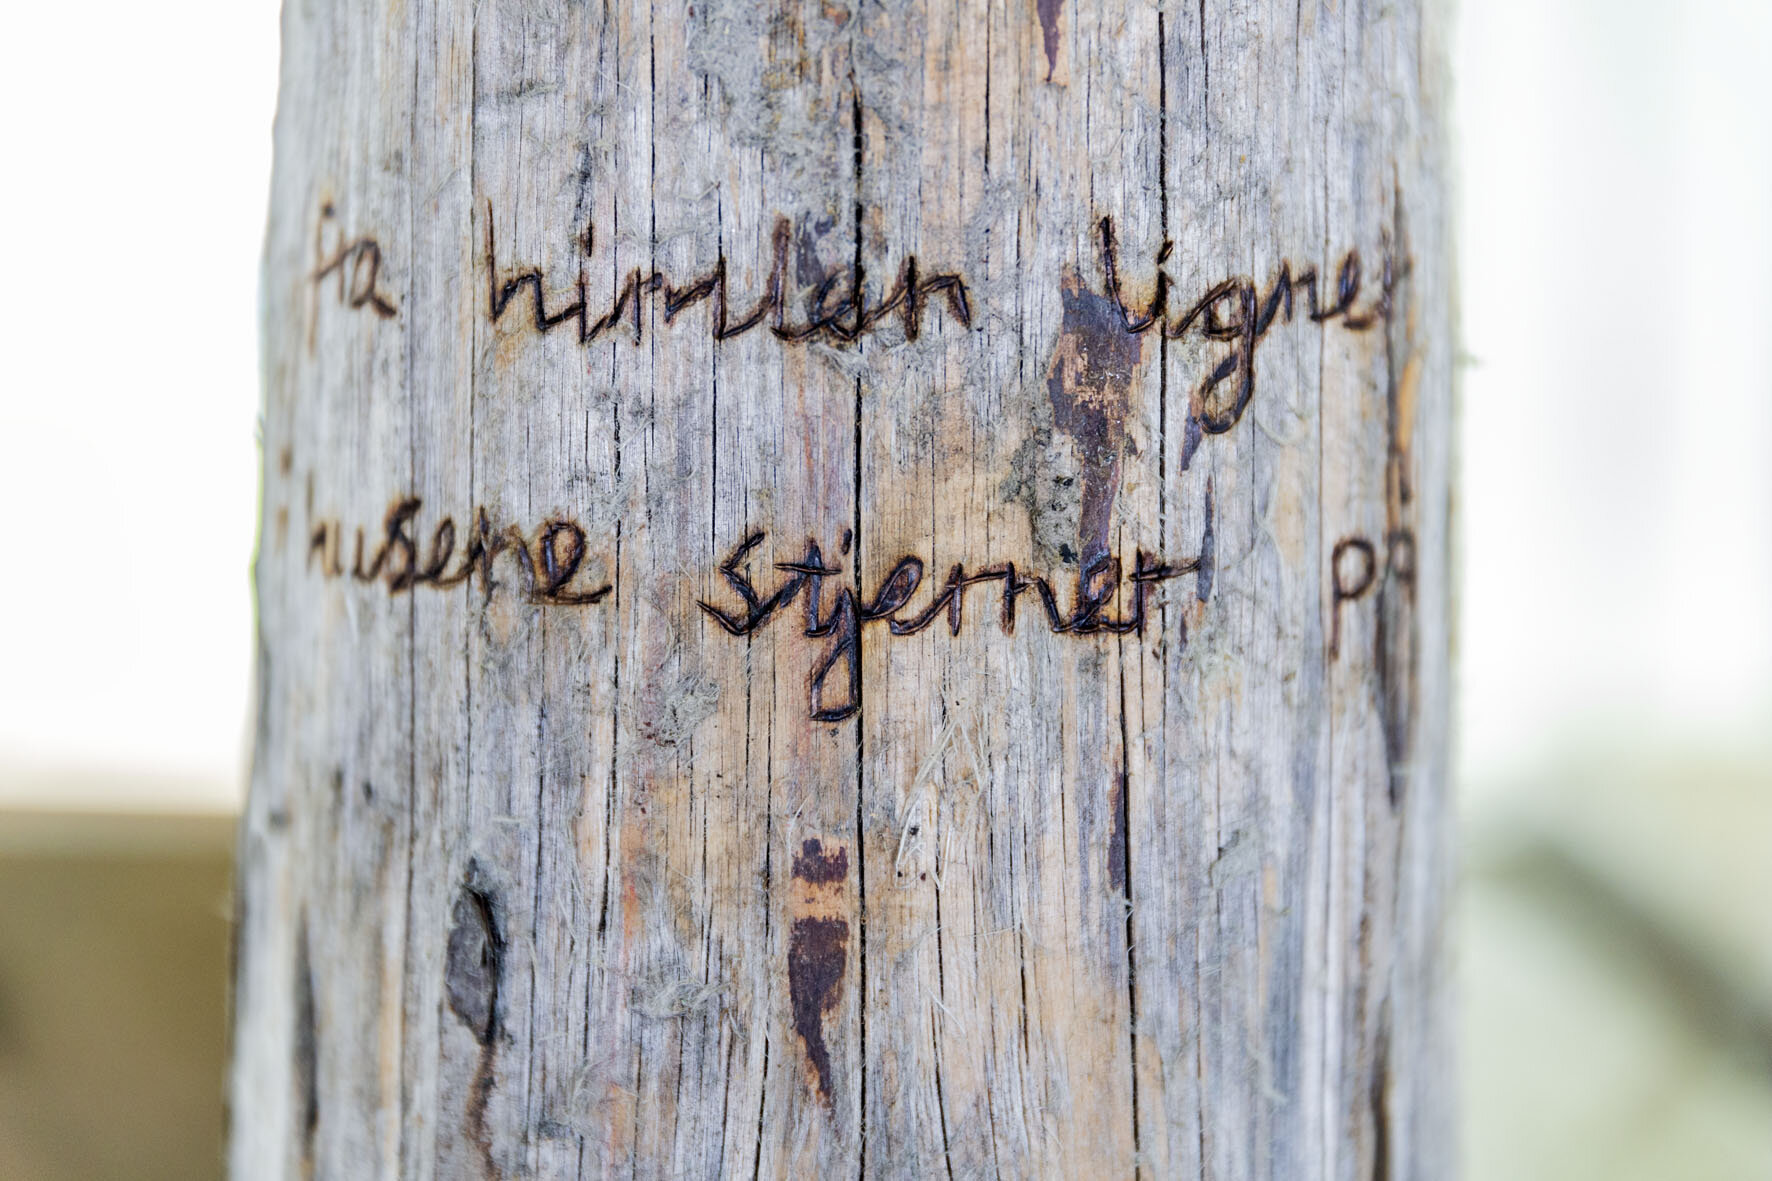 ja himlen ligner
husene stjerner på